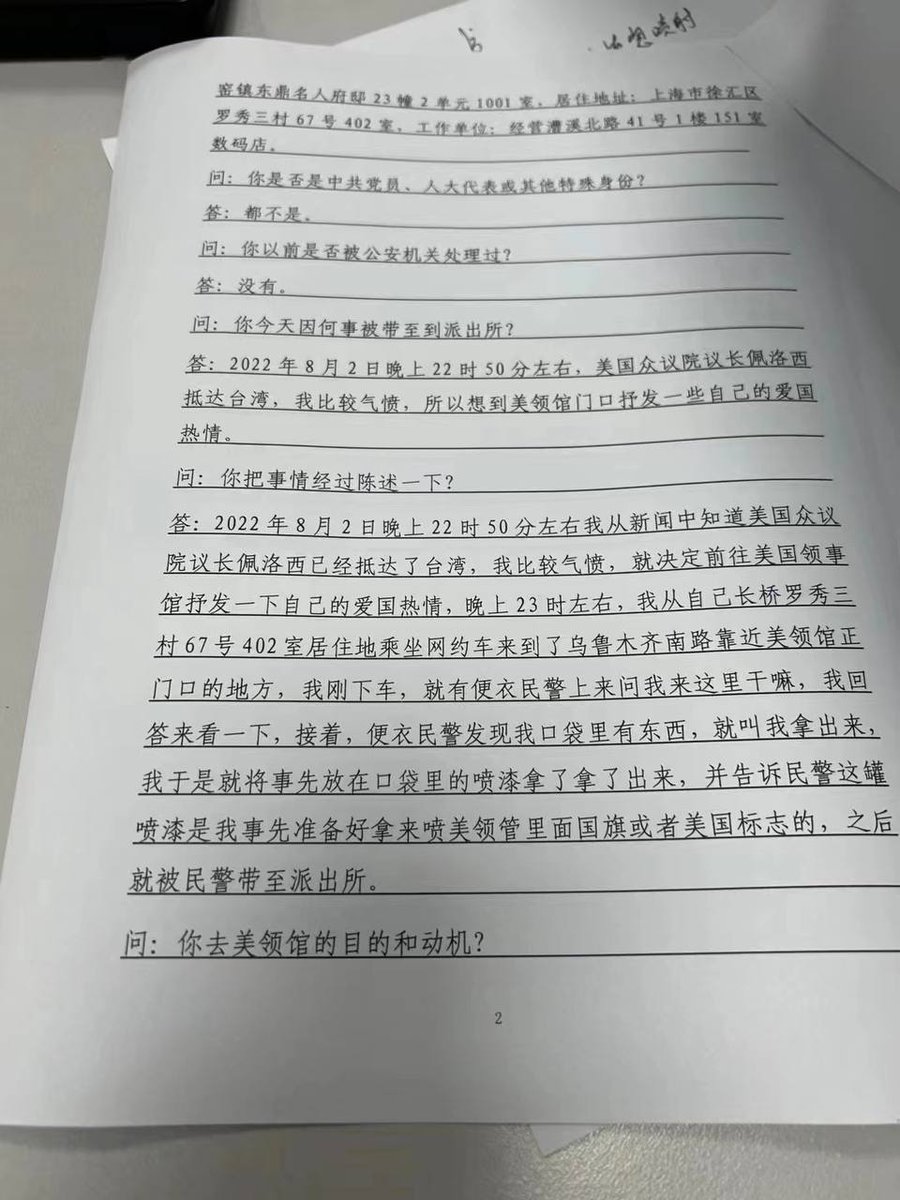 出想喷射
窑镇东鼎名人府邸 23 幢 2 单元 1001 室，居住地址：上海市徐汇区
罗秀三村 67 号 402 室，工作单位：经营漕溪北路 41 号 1 楼 151 室
数码店。
问：你是否是中共党员、人大代表或其他特殊身份？
答：都不是。
问：你以前是否被公安机关处理过？
答：没有。
问：你今天因何事被带至到派出所？
答：2022 年 8 月 2 日晚上 22 时 50 分左右，美国众议院议长佩洛西
抵达台湾，我比较气愤，所以想到美领馆门口抒发一些自己的爱国
热情。
问：你把事情经过陈述一下？
答：2022 年 8 月 2 日晚上 22 时 50 分左右我从新闻中知道美国众议
院议长佩洛西已经抵达了台湾，我比较气愤，就决定前往美国领事
馆抒发一下自己的爱国热情，晚上 23 时左右，我从自己长桥罗秀三
村 67 号 402 室居住地乘坐网约车来到了乌鲁木齐南路靠近美领馆正
门口的地方，我刚下车，就有便衣民警上来问我来这里干嘛，我回
答来看一下，接着，便衣民警发现我口袋里有东西，就叫我拿出来，
我于是就将事先放在口袋里的喷漆拿了拿了出来，并告诉民警这罐
喷漆是我事先准备好拿来喷美领管里面国旗或者美国标志的，之后
就被民警带至派出所。
问：你去美领馆的目的和动机？
2